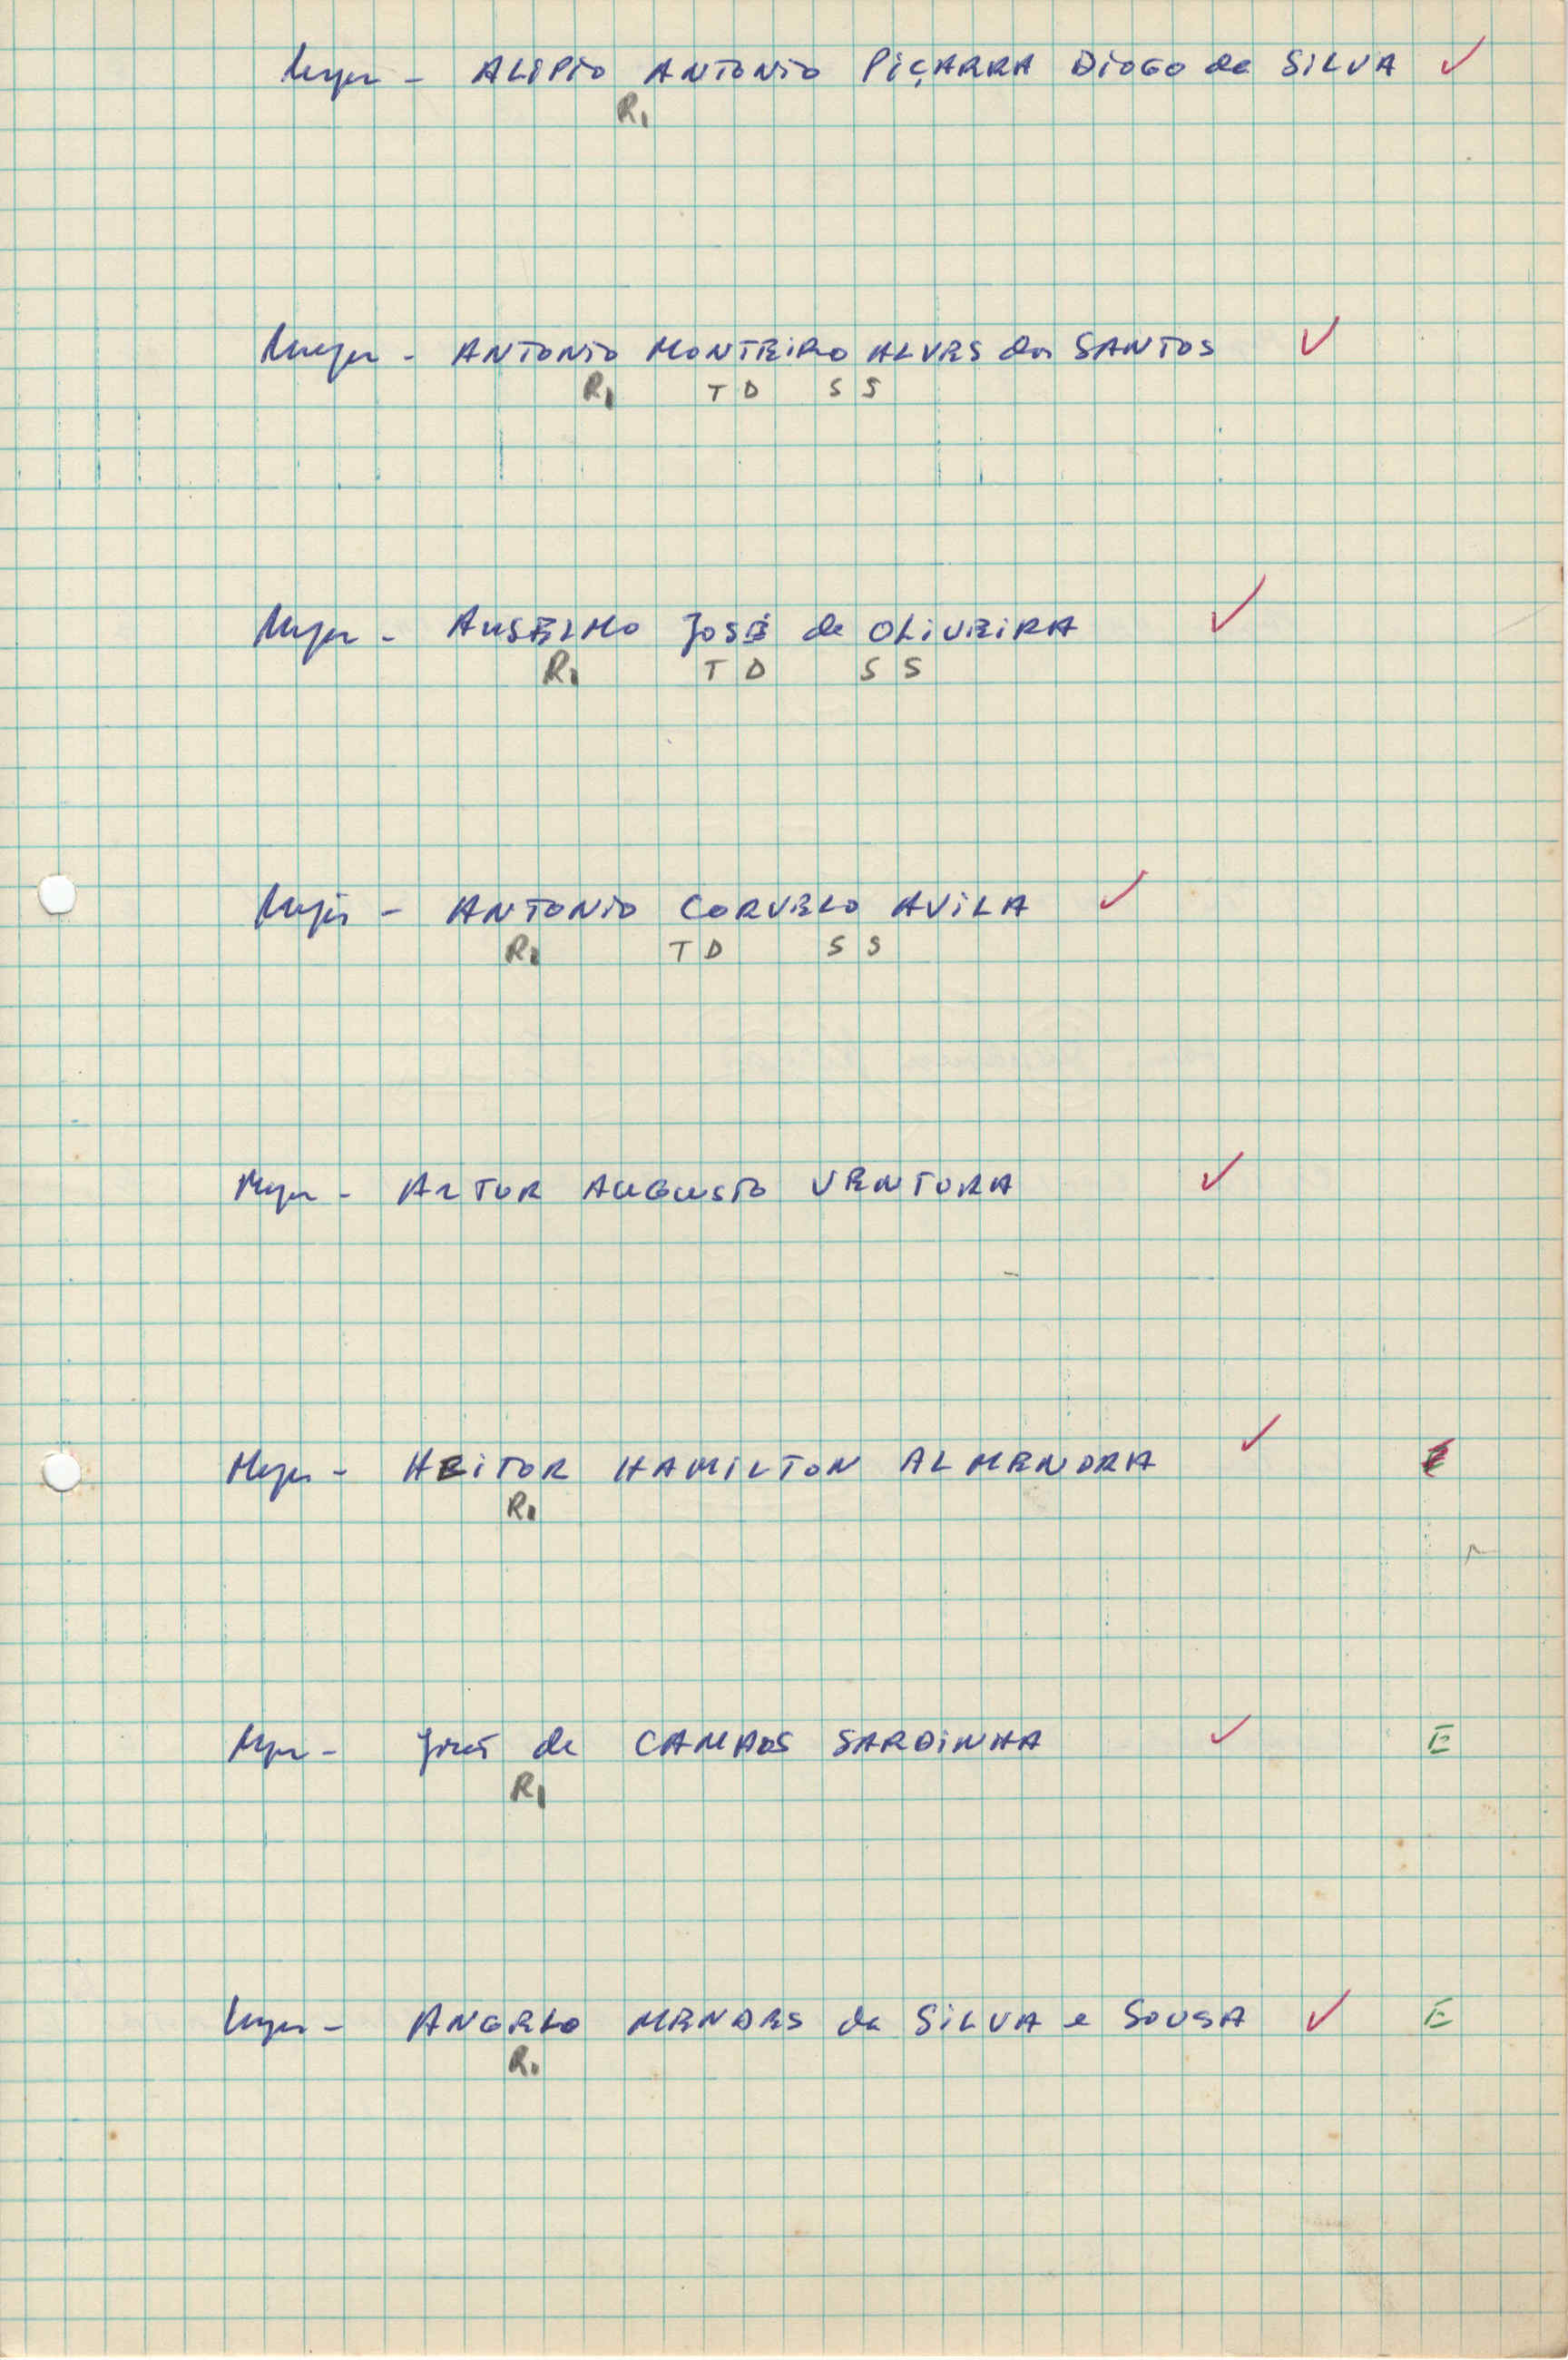 Major - ALIPIO ANTONIO PIÇARRA DIOGO da SILVA ✓
R1
Major - ANTONIO MONTEIRO ALVES dos SANTOS ✓
R1 T D S S
Major - ANSELMO JOSÉ de OLIVEIRA ✓
R1 T D S S
Major - ANTONIO CORVELO AVILA ✓
R1 T D S S
Major - ARTUR AUGUSTO VENTURA ✓
Major - HEITOR HAMILTON ALMENDRA ✓
R1
Major - José de CAMPOS SARDINHA ✓ E
R1
Major - ANGELO MENDES da SILVA e SOUSA ✓ E
R1